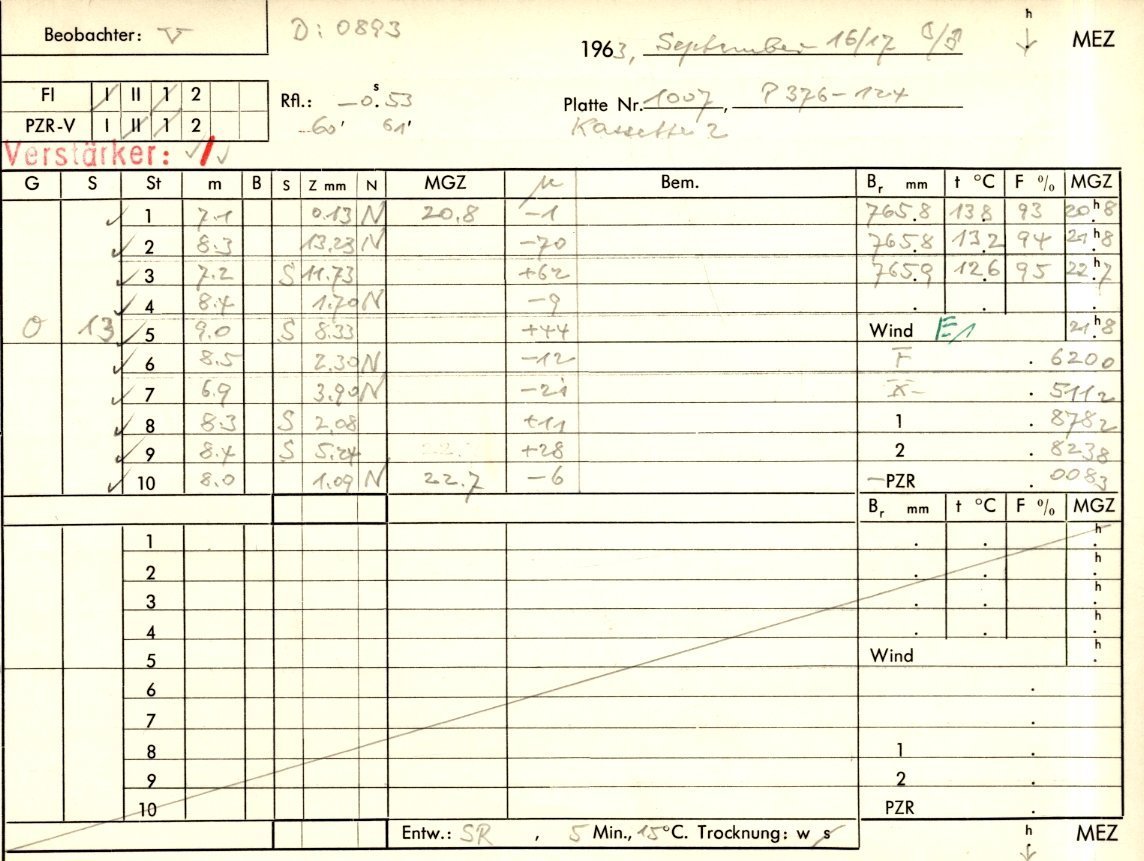 Beobachter: V D: 0893 1963, September 16/17 h MEZ
FI I II 1 2 Rfl.: —0.53 s Platte Nr. 1007, P 376-124
PZR-V I II 1 2 -60' 61' Kassette 2
Verstärker:
G S St m B S Z mm N MGZ μ Bem. Br mm t °C F % MGZ
1 7.1 0.13 N 20.8 -1 765.8 13.8 93 20h.8
2 8.3 13.23 N -70 765.8 13.2 94 21h.8
3 7.2 S 11.73 +62 765.9 12.6 95 22h.7
4 8.4 1.70 N -9
0 13 5 9.0 S 8.33 +44 Wind E1 21h.8
6 8.5 2.30 N -12 F . 6200
7 6.9 3.90 N -21 . 5112
8 8.3 S 2.08 +11 1 . 8782
9 8.4 S 5.24 +28 2 . 8238
10 8.0 1.09 N 22.7 -6 -PZR . 0083
Br mm t °C F % MGZ
1 . . h.
2 . . h.
3 . . h.
4 . . h.
5 Wind h.
6 .
7 .
8 1 .
9 2 .
10 PZR .
Entw.: SR , 5 Min., 15°C. Trocknung: w s h MEZ